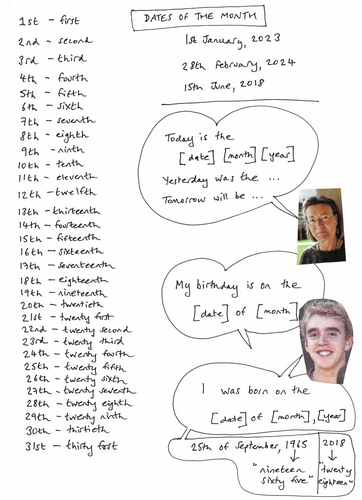 DATES OF THE MONTH
1st - first
2nd - second
3rd - third
4th - fourth
5th - fifth
6th - sixth
7th - seventh
8th - eighth
9th - ninth
10th - tenth
11th - eleventh
12th - twelfth
13th - thirteenth
14th - fourteenth
15th - fifteenth
16th - sixteenth
17th - seventeenth
18th - eighteenth
19th - nineteenth
20th - twentieth
21st - twenty first
22nd - twenty second
23rd - twenty third
24th - twenty fourth
25th - twenty fifth
26th - twenty sixth
27th - twenty seventh
28th - twenty eighth
29th - twenty ninth
30th - thirtieth
31st - thirty first
1st January, 2023
28th February, 2024
15th June, 2018
Today is the
[date] [month] [year]
Yesterday was the ...
Tomorrow will be ...
My birthday is on the
[date] of [month]
I was born on the
[date] of [month], [year]
25th of September, 1965
2018
"nineteen
sixty five"
"twenty
eighteen"